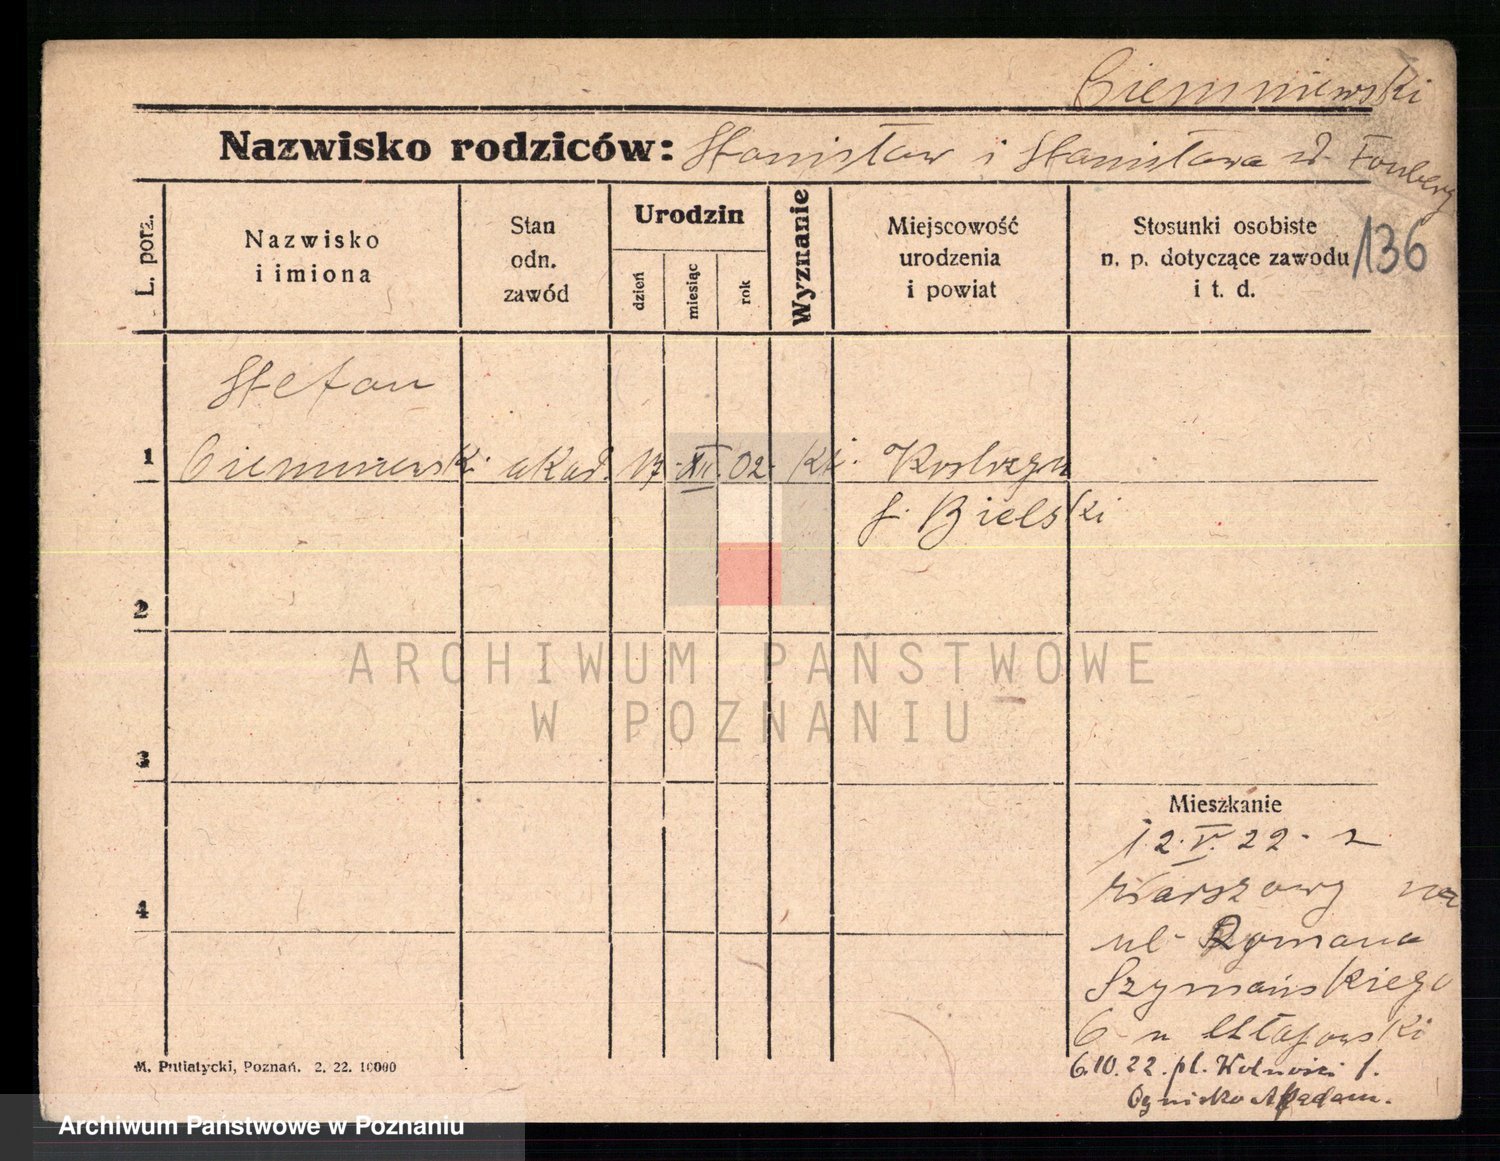 Ciemniewski
Nazwisko rodziców: Stanisław i Stanisława
136
L. porz.
Nazwisko
i imiona
Stan
odn.
zawód
Urodzin
dzień
miesiąc
rok
Wyznanie
Miejscowość
urodzenia
i powiat
Stosunki osobiste
n. p. dotyczące zawodu
i t. d.
Stefan
1 Ciemniewski akad. 17. XII. 02. kt.
Bielski
2
3
4
Mieszkanie
12. V. 22. z
Warszawy na
ul. Romana
Szymańskiego
6
6.10.22. pl. Wolności 1.
Ognisko Akadem.
M. Putiatycki, Poznań. 2. 22. 10000
ARCHIWUM PAŃSTWOWE
W POZNANIU
Archiwum Państwowe w Poznaniu